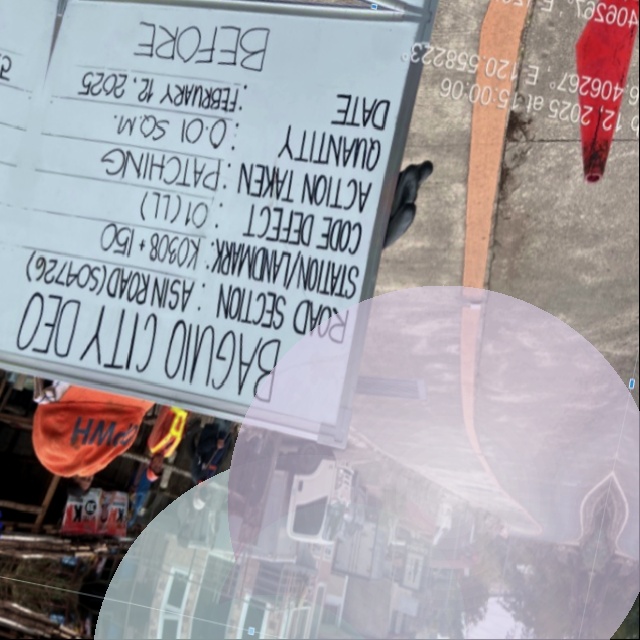 BAGUIO CITY DEO
ROAD SECTION : ASIN ROAD (S04726)
STATION/LANDMARK: K0308+150
CODE DEFECT : 01 (LL)
ACTION TAKEN : PATCHING
QUANTITY : 0.01 SQ.M.
DATE : FEBRUARY 12, 2025
BEFORE
12, 2025 at 15:00:06
6.406267° E 120.558223°